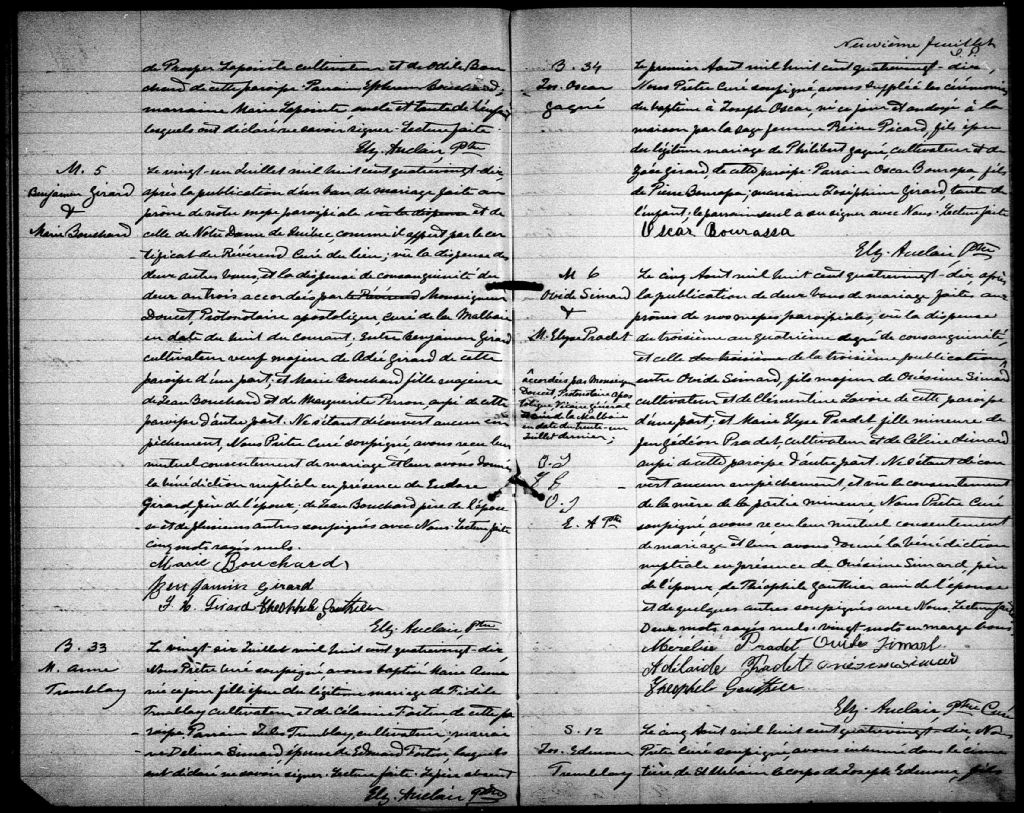 de Prosper Lapointe cultivateur et de Odile Bou
chard de cette paroisse. Parrain Ephrem Bouchard;
marraine Marie Lapointe, oncle et tante de l'enfant
lesquels ont déclaré ne savoir signer. Lecture faite.
Elz. Auclair Ptre
M. 5
Benjamin Girard
&
Marie Bouchard
Le vingt-un Juillet mil huit cent quatrevingt-dix,
après la publication d'un ban de mariage faite au
prône de notre messe paroissiale vu la dispense et de
celle de Notre Dame de Québec, comme il appert par le cer
tificat du Révérend Curé du lieu; vu la dispense des
deux autres bans, et la dispense de consanguinité du
deux au trois accordées par le Révérend Monseigneur
Doucet, Protonotaire apostolique Curé de la Malbaie
en date du huit du courant; Entre Benjamin Girard
cultivateur veuf majeur de Adé Girard de cette
paroisse d'une part; et Marie Bouchard fille majeure
de Jean Bouchard & de Marguerite Perron, aussi de cette
paroisse d'autre part. Ne s'étant découvert aucun em
pêchement, Nous Prêtre Curé soussigné, avons reçu leur
mutuel consentement de mariage et leur avons donné
la bénédiction nuptiale en présence de
Girard père de l'époux; de Jean Bouchard père de l'épouse
et de plusieurs autres soussignés avec Nous. Lecture faite
Cinq mots rayés nuls.
Marie Bouchard
Benjamin Girard
Girard Theophile Gauthier
Elz. Auclair Ptre
B. 33
M. Anne
Tremblay
Le vingt six Juillet mil huit cent quatrevingt-dix
Nous Prêtre Curé soussigné avons baptisé Marie Anne
née ce jour fille issue du légitime mariage de Fidèle
Tremblay cultivateur et de Célanire Fortin de cette pa
roisse. Parrain Tremblay, cultivateur; marrai
ne Delima Simard, épouse de Edouard Fortin, lesquels
ont déclaré ne savoir signer. Lecture faite. Le père absent
Elz. Auclair Ptre
Neuvième feuillet
B. 34
Jos. Oscar
Gagné
Le premier Aout mil huit cent quatrevingt-dix,
Nous Prêtre Curé soussigné avons suppléé les cérémonies
du baptême à Joseph Oscar, né ce jour et ondoyé à la
maison par la sage femme Reine Picard, fils issu
du légitime mariage de Philibert Gagné, cultivateur et de
Girard, de cette paroisse. Parrain Oscar Bourassa, fils
de Pierre Bourassa; marraine Joséphine Girard, tante de
l'enfant; le parrain seul a su signer avec Nous. Lecture faite
Oscar Bourassa
Elz. Auclair Ptre
M 6
Ovide Simard
&
M. Elyse Pradet
Le cinq Aout mil huit cent quatrevingt-dix, après
la publication de deux bans de mariage faite aux
prônes de nos messes paroissiales, vu la dispense
du troisième au quatrième degré de consanguinité
et celle du troisième de la troisième publication,
entre Ovide Simard, fils majeur de Onésime Simard
cultivateur et de Clémentine Lavoie de cette paroisse
d'une part; et Marie Elyse Pradet fille mineure de
feu Gédéon Pradet cultivateur et de Céline Simard
aussi de cette paroisse d'autre part. Ne s'étant décou
vert aucun empêchement, et vu le consentement
de la mère de la partie mineure Nous Prêtre Curé
soussigné avons reçu leur mutuel consentement
de mariage et leur avons donné la bénédiction
nuptiale en présence de Onésime Simard, père
de l'époux, de Théophile Gauthier ami de l'épouse
et de quelques autres soussignés avec Nous. Lecture faite
Deux mots rayés nuls. vingt mots en marge bons.
accordées par Monseign
Doucet, Protonotaire Apos
tolique, Vicaire Général
et Curé de la Malbaie
en date du trente-un
Juillet dernier;
O. S
T. G
O. S
E. A Ptre
Pradet Ovide Simard
Adélaide Pradet Onésime Simard
Theophile Gauthier
Elz. Auclair Ptre Curé
S. 12
Jos. Edmour
Tremblay
Le cinq Aout mil huit cent quatrevingt-dix, Nous
Prêtre Curé soussigné, avons inhumé dans le cime
tière de St Urbain le corps de Joseph Edmour, fils